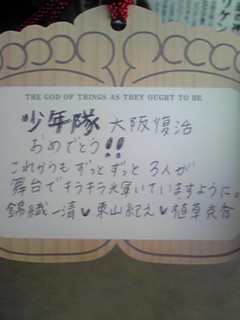 THE GOD OF THINGS AS THEY OUGHT TO BE
少年隊 大阪復活
おめでとう!!
これからもずっとずっと 3人が
舞台でキラキラ輝いていますように。
錦織一清♥東山紀之♥植草克秀